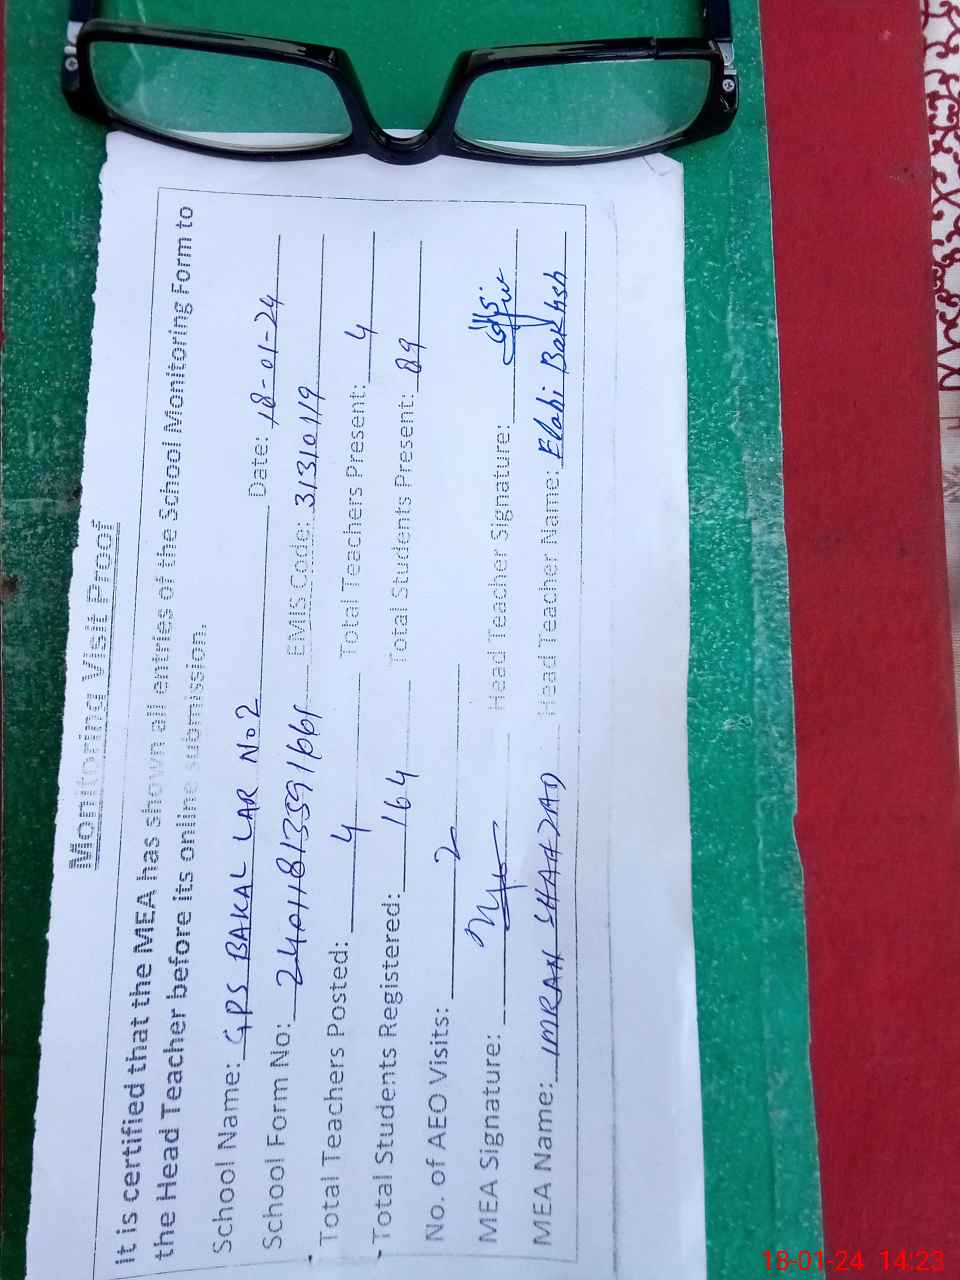 Monitoring Visit Proof
It is certified that the MEA has shown all entries of the School Monitoring Form to
the Head Teacher before its online submission.
School Name: GPS BAKAL LAR No2 Date: 18-01-24
School Form No: 2401181359166 EMIS Code: 31310119
Total Teachers Posted: 4 Total Teachers Present: 4
Total Students Registered: 164 Total Students Present: 89
No. of AEO Visits: 2
MEA Signature: Head Teacher Signature:
MEA Name: IMRAN SHAHZAD Head Teacher Name: Elahi Bakhsh
18-01-24 14:23